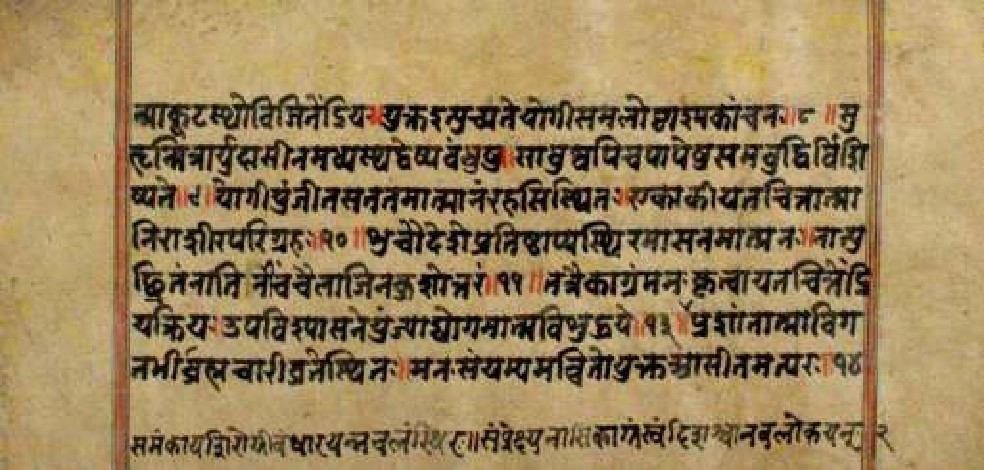 त्माकूटस्थोविजितेंद्रियः युक्तइत्युच्यतेयोगीसमलोष्टाश्मकांचनः ॥८॥ सु
हृन्मित्रार्युदासीनमध्यस्थद्वेष्यबंधुषु ॥ साधुष्वपिचपापेषुसमबुद्धिर्विशि
ष्यते ॥९॥ योगीयुंजीतसततमात्मानंरहसिस्थितः एकाकीयतचित्तात्मा
निराशीरपरिग्रहः ॥१०॥ शुचौदेशेप्रतिष्टाप्यस्थिरमासनमात्मनः नात्यु
छ्रितंनातिनीचंचैलाजिनकुशोत्तरं ॥११॥ तत्रैकाग्रंमनः कृत्वायतचित्तेंद्रि
यक्रियः उपविश्यासनेयुंज्याद्योगमात्मविशुद्धये ॥१२॥ प्रशांतात्माविग
तभीर्ब्रह्मचारीव्रतेस्थितः मनःसंयम्यमच्चित्तोयुक्तआसीतमत्परः ॥१४
समंकायशिरोग्रीवंधारयन्नचलंस्थिरः ॥ संप्रेक्ष्यनासिकाग्रंस्वंदिशश्चानवलोकयन् २